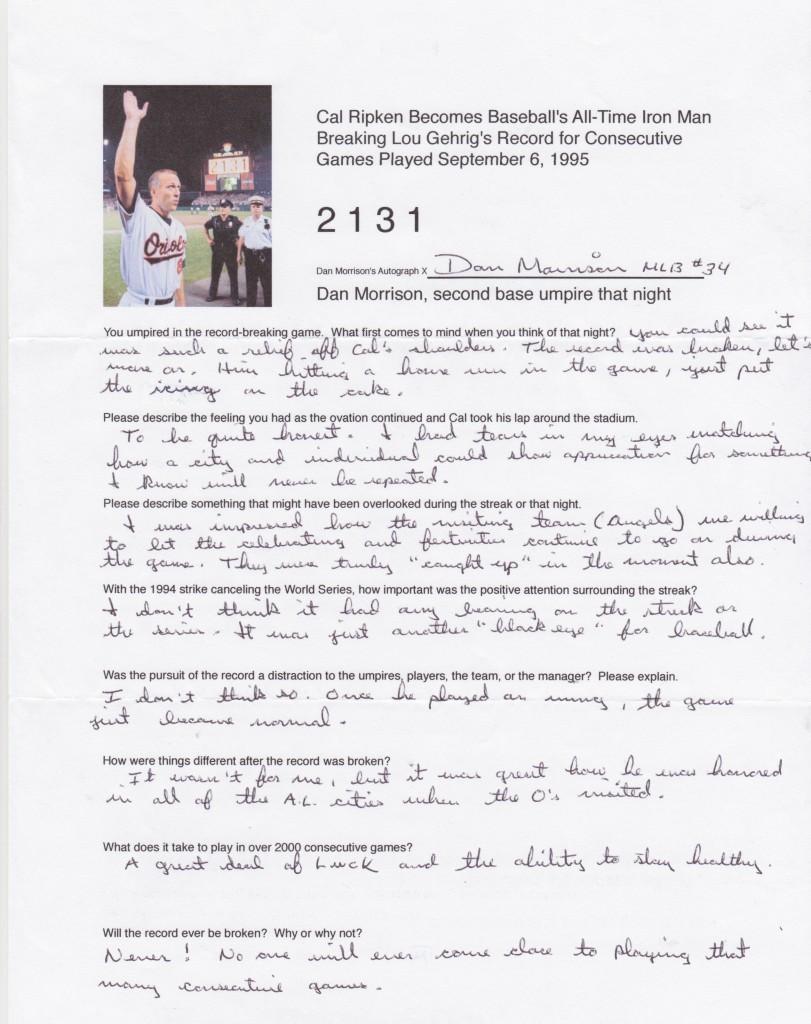 Cal Ripken Becomes Baseball's All-Time Iron Man
Breaking Lou Gehrig's Record for Consecutive
Games Played September 6, 1995
2131
2131
Oriol
Dan Morrison's Autograph X Dan Morrison MLB #34
Dan Morrison, second base umpire that night
You umpired in the record-breaking game. What first comes to mind when you think of that night? You could see it
was such a relief off Cal's shoulders. The record was broken, let's
move on. Him hitting a home run in the game, just put
the icing on the cake.
Please describe the feeling you had as the ovation continued and Cal took his lap around the stadium.
To be quite honest. I had tears in my eyes watching
how a city and individual could show appreciation for something
I know will never be repeated.
Please describe something that might have been overlooked during the streak or that night.
I was impressed how the visiting team (Angels) were willing
to let the celebrating and festivities continue to go on during
the game. They were truly "caught up" in the moment also.
With the 1994 strike canceling the World Series, how important was the positive attention surrounding the streak?
I don't think it had any bearing on the streak or
the series. It was just another "black eye" for baseball.
Was the pursuit of the record a distraction to the umpires, players, the team, or the manager? Please explain.
I don't think so. Once he played an inning, the game
just became normal.
How were things different after the record was broken?
It wasn't for me, but it was great how he was honored
in all of the A.L. cities when the O's visited.
What does it take to play in over 2000 consecutive games?
A great deal of Luck and the ability to stay healthy.
Will the record ever be broken? Why or why not?
Never! No one will ever come close to playing that
many consecutive games.